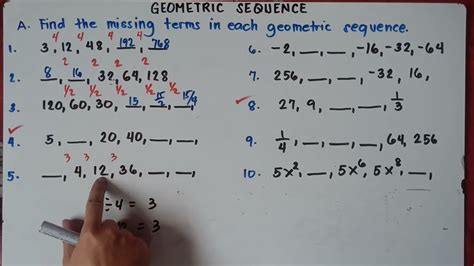 GEOMETRIC SEQUENCE
A. Find the missing terms in each geometric sequence.
4 4 4 4
1. 3, 12, 48, 192, 768
2 2 2 2
2. 8, 16, 32, 64, 128
1/2 1/2 1/2 1/2 1/2
3. 120, 60, 30, 15, 15/2, 15/4
✓
4. 5, __, 20, 40, __, __,
3 3 3
5. __, 4, 12, 36, __, __,
÷4 = 3
= 3
6. -2, __, __, -16, -32, -64
7. 256, __, __, -32, 16,
✓
8. 27, 9, __, __, 1/3
9. 1/4, __, __, __, 64, 256
10. 5x², __, 5x⁶, 5x⁸, __,